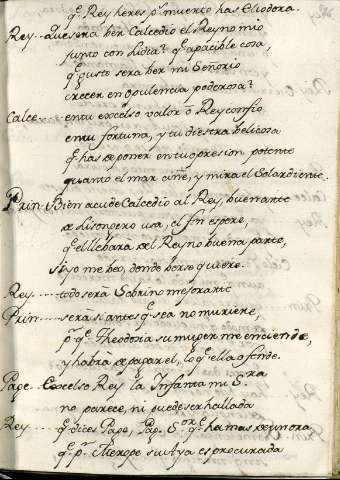 q.e Rey heres p.r muerto has Eliodora.
Rey.. que sera ber Calcedio el Reyno mio
junto con Lidia? q.e apacible cosa,
q.e gusto sera ber mi Señorio
crecer en opulencia poderosa?
Calce... en tu excelso valor ô Rey confio
en tu fortuna, y tu diestra belicosa
q.e has de poner en tu opresion potente
quanto el mar ciñe, y mira el Sol ardiente.
Prin.. Bien acude Calcedio al Rey, buen arte
de lisongero usa, el fin espere,
q.e el llebará del Reyno buena parte,
si yo me beo, donde borse quiere.
Rey..... todo será Sabrino mejorarte
Prin..... sera si antes q.e sea no muriere,
p.r q.e Theodosia su muger me enciende,
y habrá de pagar el, lo q.e ella ofende.
Page.. Excelso Rey la Infanta mi S.ra
no parece, ni puede ser hallada
Rey..... q.e dices Page, Pag. S.or q.e ha mas de un ora
q.e p.r Merope su tya es procurada